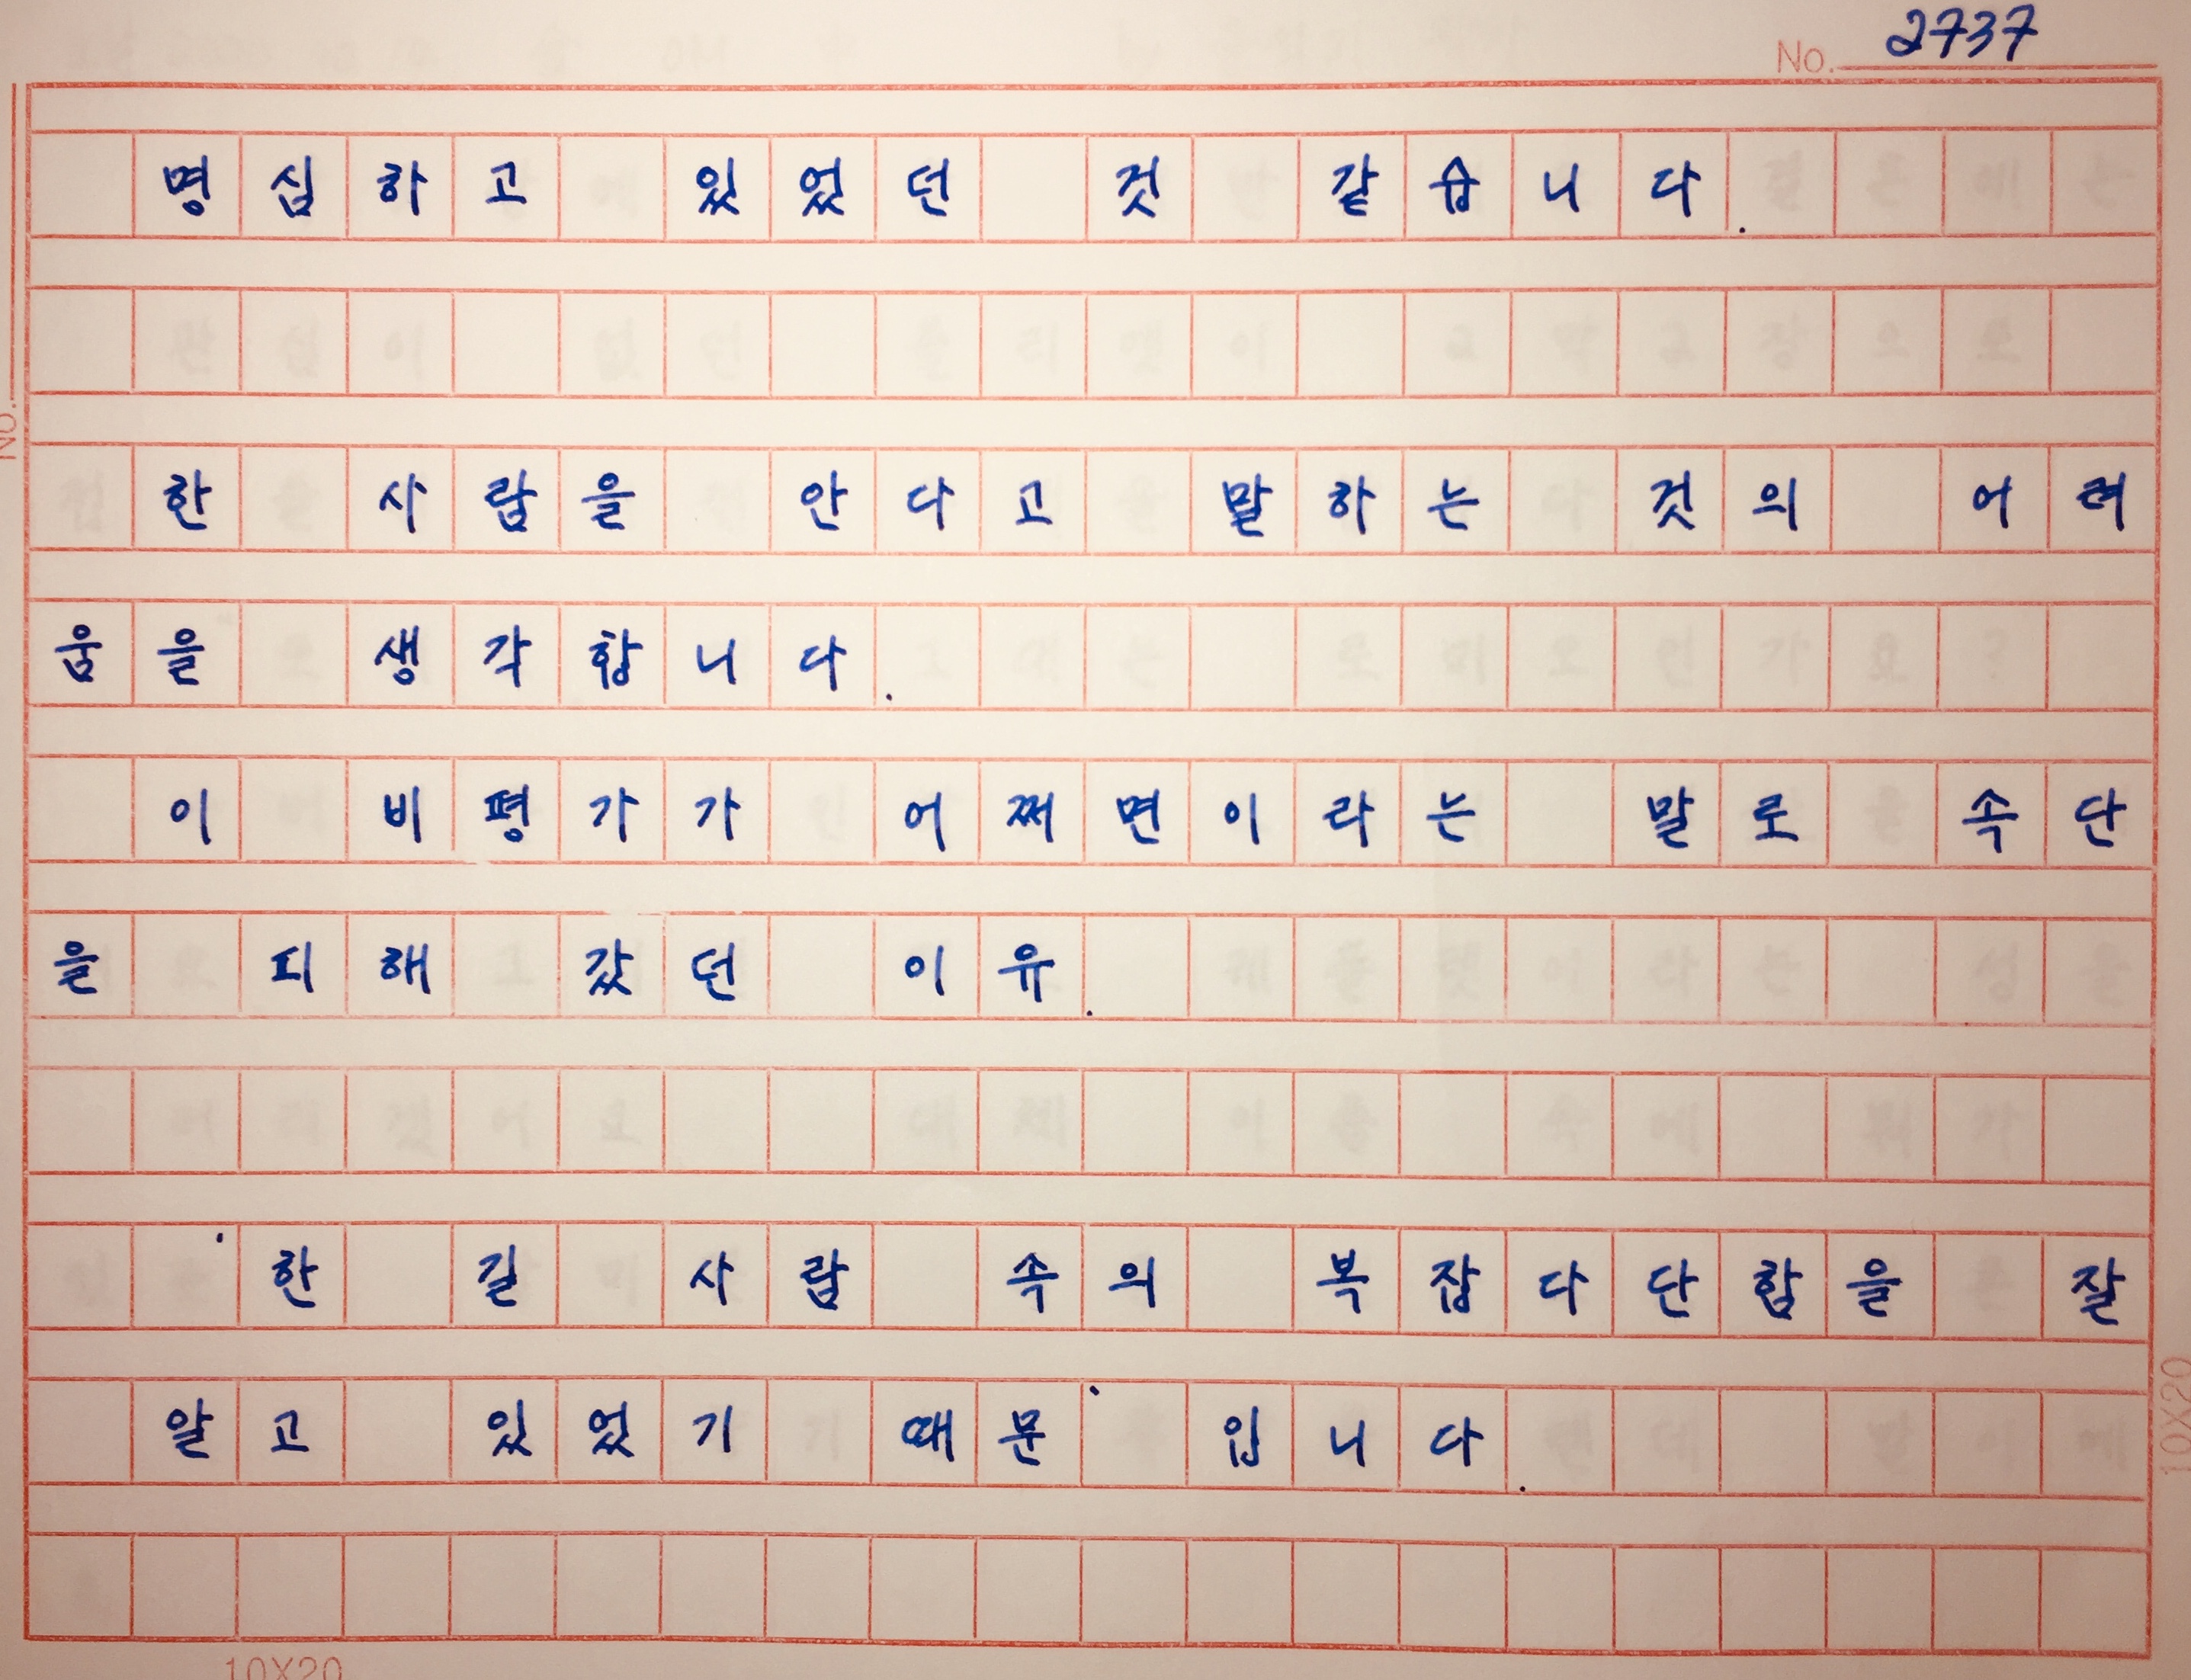 No. 2737
명심하고 있었던 것 같습니다.
한 사람을 안다고 말하는 것의 어려
움을 생각합니다.
이 비평가가 어쩌면이라는 말로 속단
을 피해 갔던 이유.
'한 길 사람 속의 복잡다단함을 잘
알고 있었기 때문' 입니다.
No.
10X20
10X20